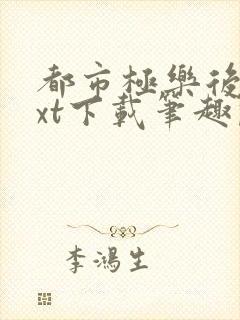 都市極樂後
xt下載筆趣
李鴻生